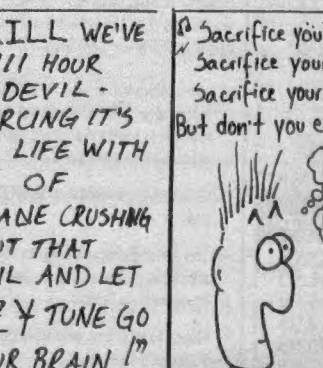 ILL WE'VE
HOUR
DEVIL -
RCING IT'S
LIFE WITH
OF
CRUSHING
UT THAT
IL AND LET
TUNE GO
UR BRAIN !"
Sacrifice you
Sacrifice your
Sacrifice your
But don't you e